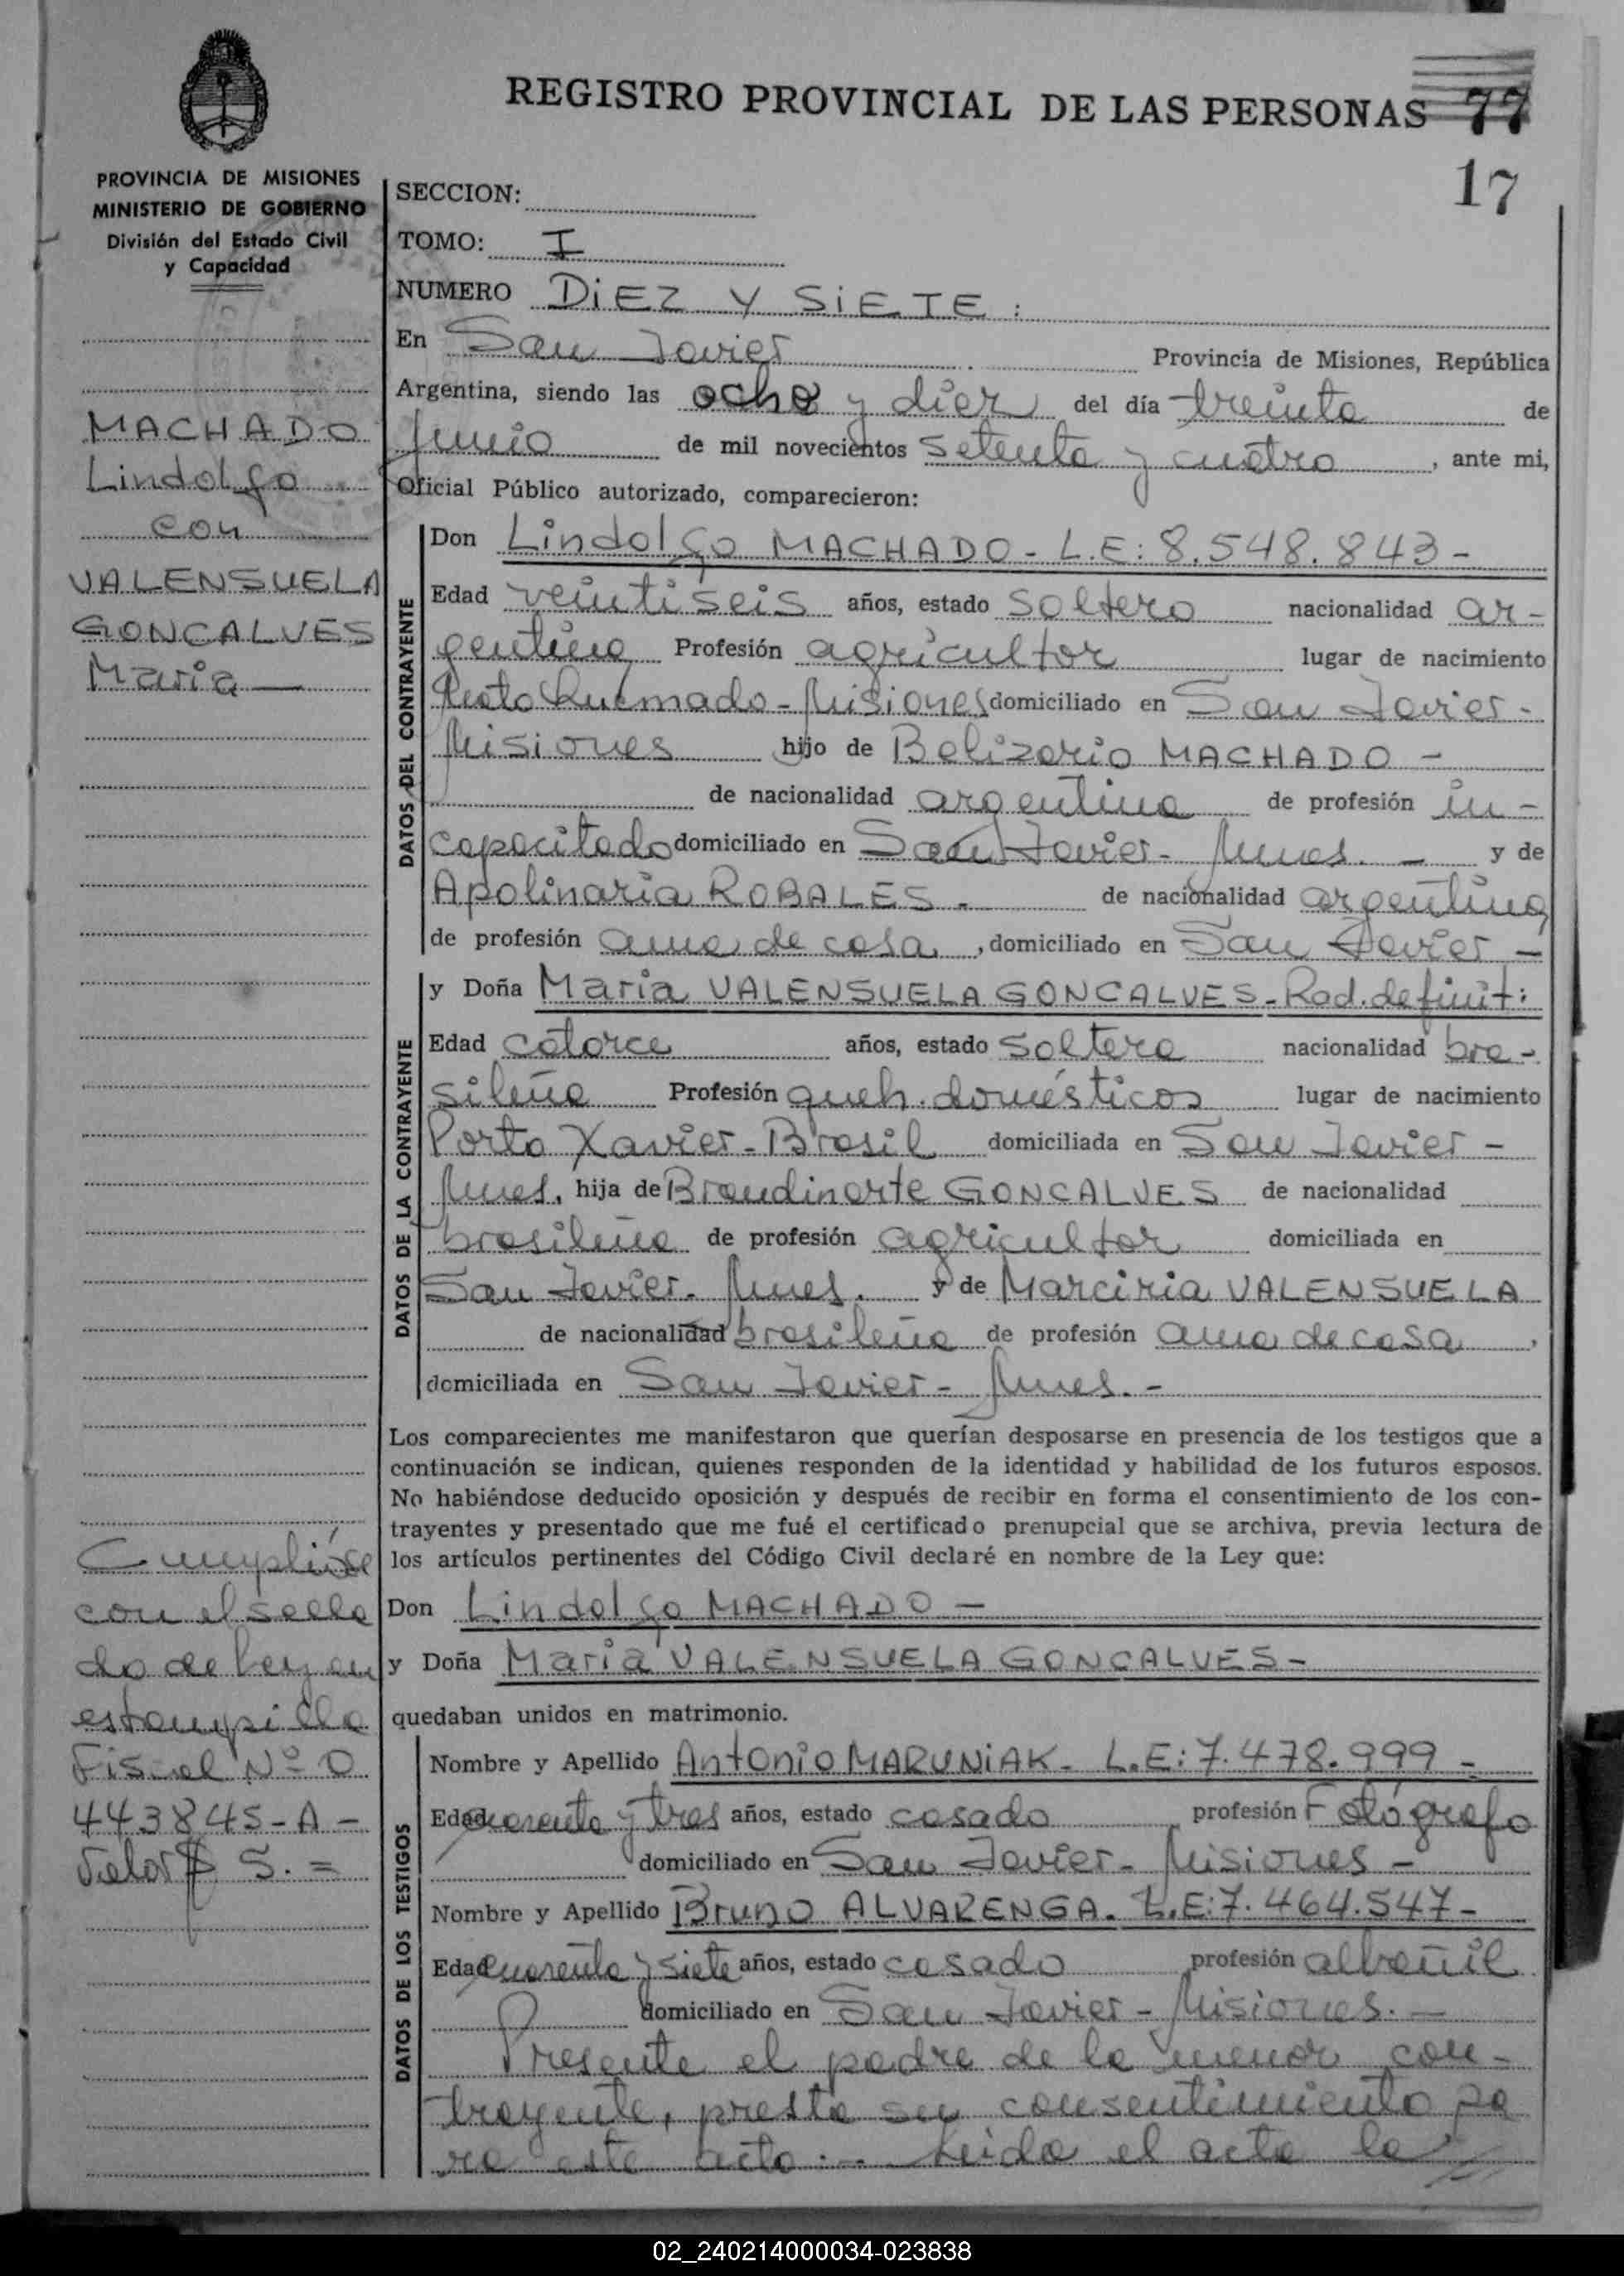 REGISTRO PROVINCIAL DE LAS PERSONAS 77
17
PROVINCIA DE MISIONES
MINISTERIO DE GOBIERNO
División del Estado Civil
y Capacidad
MACHADO
Lindolfo
con
VALENSUELA
GONCALVES
Maria
SECCION:
TOMO: I
NUMERO DIEZ Y SIETE:
En San Javier Provincia de Misiones, República
Argentina, siendo las ocho y diez del día treinta de
Junio de mil novecientos setenta y cuatro, ante mi,
Oficial Público autorizado, comparecieron:
DATOS DEL CONTRAYENTE
Don Lindolfo MACHADO - L.E: 8.548.843 -
Edad veintiseis años, estado soltero nacionalidad ar-
gentina Profesión agricultor lugar de nacimiento
Quemado - Misiones domiciliado en San Javier -
Misiones hijo de Belizario MACHADO -
de nacionalidad argentina de profesión in-
capacitado domiciliado en San Javier - Mnes. - y de
Apolinaria ROBALES - de nacionalidad argentina
de profesión ama de casa, domiciliado en San Javier -
DATOS DE LA CONTRAYENTE
y Doña Maria VALENSUELA GONCALVES - Rad. definit:
Edad catorce años, estado soltera nacionalidad bra-
sileña Profesión queh. domésticos lugar de nacimiento
Porto Xavier - Brasil domiciliada en San Javier -
Mnes. hija de Brandinarte GONCALVES de nacionalidad
brasileña de profesión agricultor domiciliada en
San Javier - Mnes. y de Marciria VALENSUELA
de nacionalidad brasileña de profesión ama de casa,
domiciliada en San Javier - Mnes. -
Los comparecientes me manifestaron que querían desposarse en presencia de los testigos que a
continuación se indican, quienes responden de la identidad y habilidad de los futuros esposos.
No habiéndose deducido oposición y después de recibir en forma el consentimiento de los con-
trayentes y presentado que me fué el certificado prenupcial que se archiva, previa lectura de
los artículos pertinentes del Código Civil declaré en nombre de la Ley que:
Don Lindolfo MACHADO -
y Doña Maria VALENSUELA GONCALVES -
quedaban unidos en matrimonio.
Cumplióse
con el sella
do de ley en
estampilla
Fiscal Nº 0
443845 - A -
Valor $ 5. =
DATOS DE LOS TESTIGOS
Nombre y Apellido Antonio MARUNIAK - L.E: 7.478.999 -
Edad cuarenta y tres años, estado casado profesión Fotógrafo
domiciliado en San Javier - Misiones -
Nombre y Apellido Bruno ALVARENGA - L.E: 7.464.547 -
Edad cuarenta y siete años, estado casado profesión albañil
domiciliado en San Javier - Misiones. -
Presente el padre de la menor con-
trayente, presta su consentimiento pa
ra este acto: - Leida el acta la
02_240214000034-023838